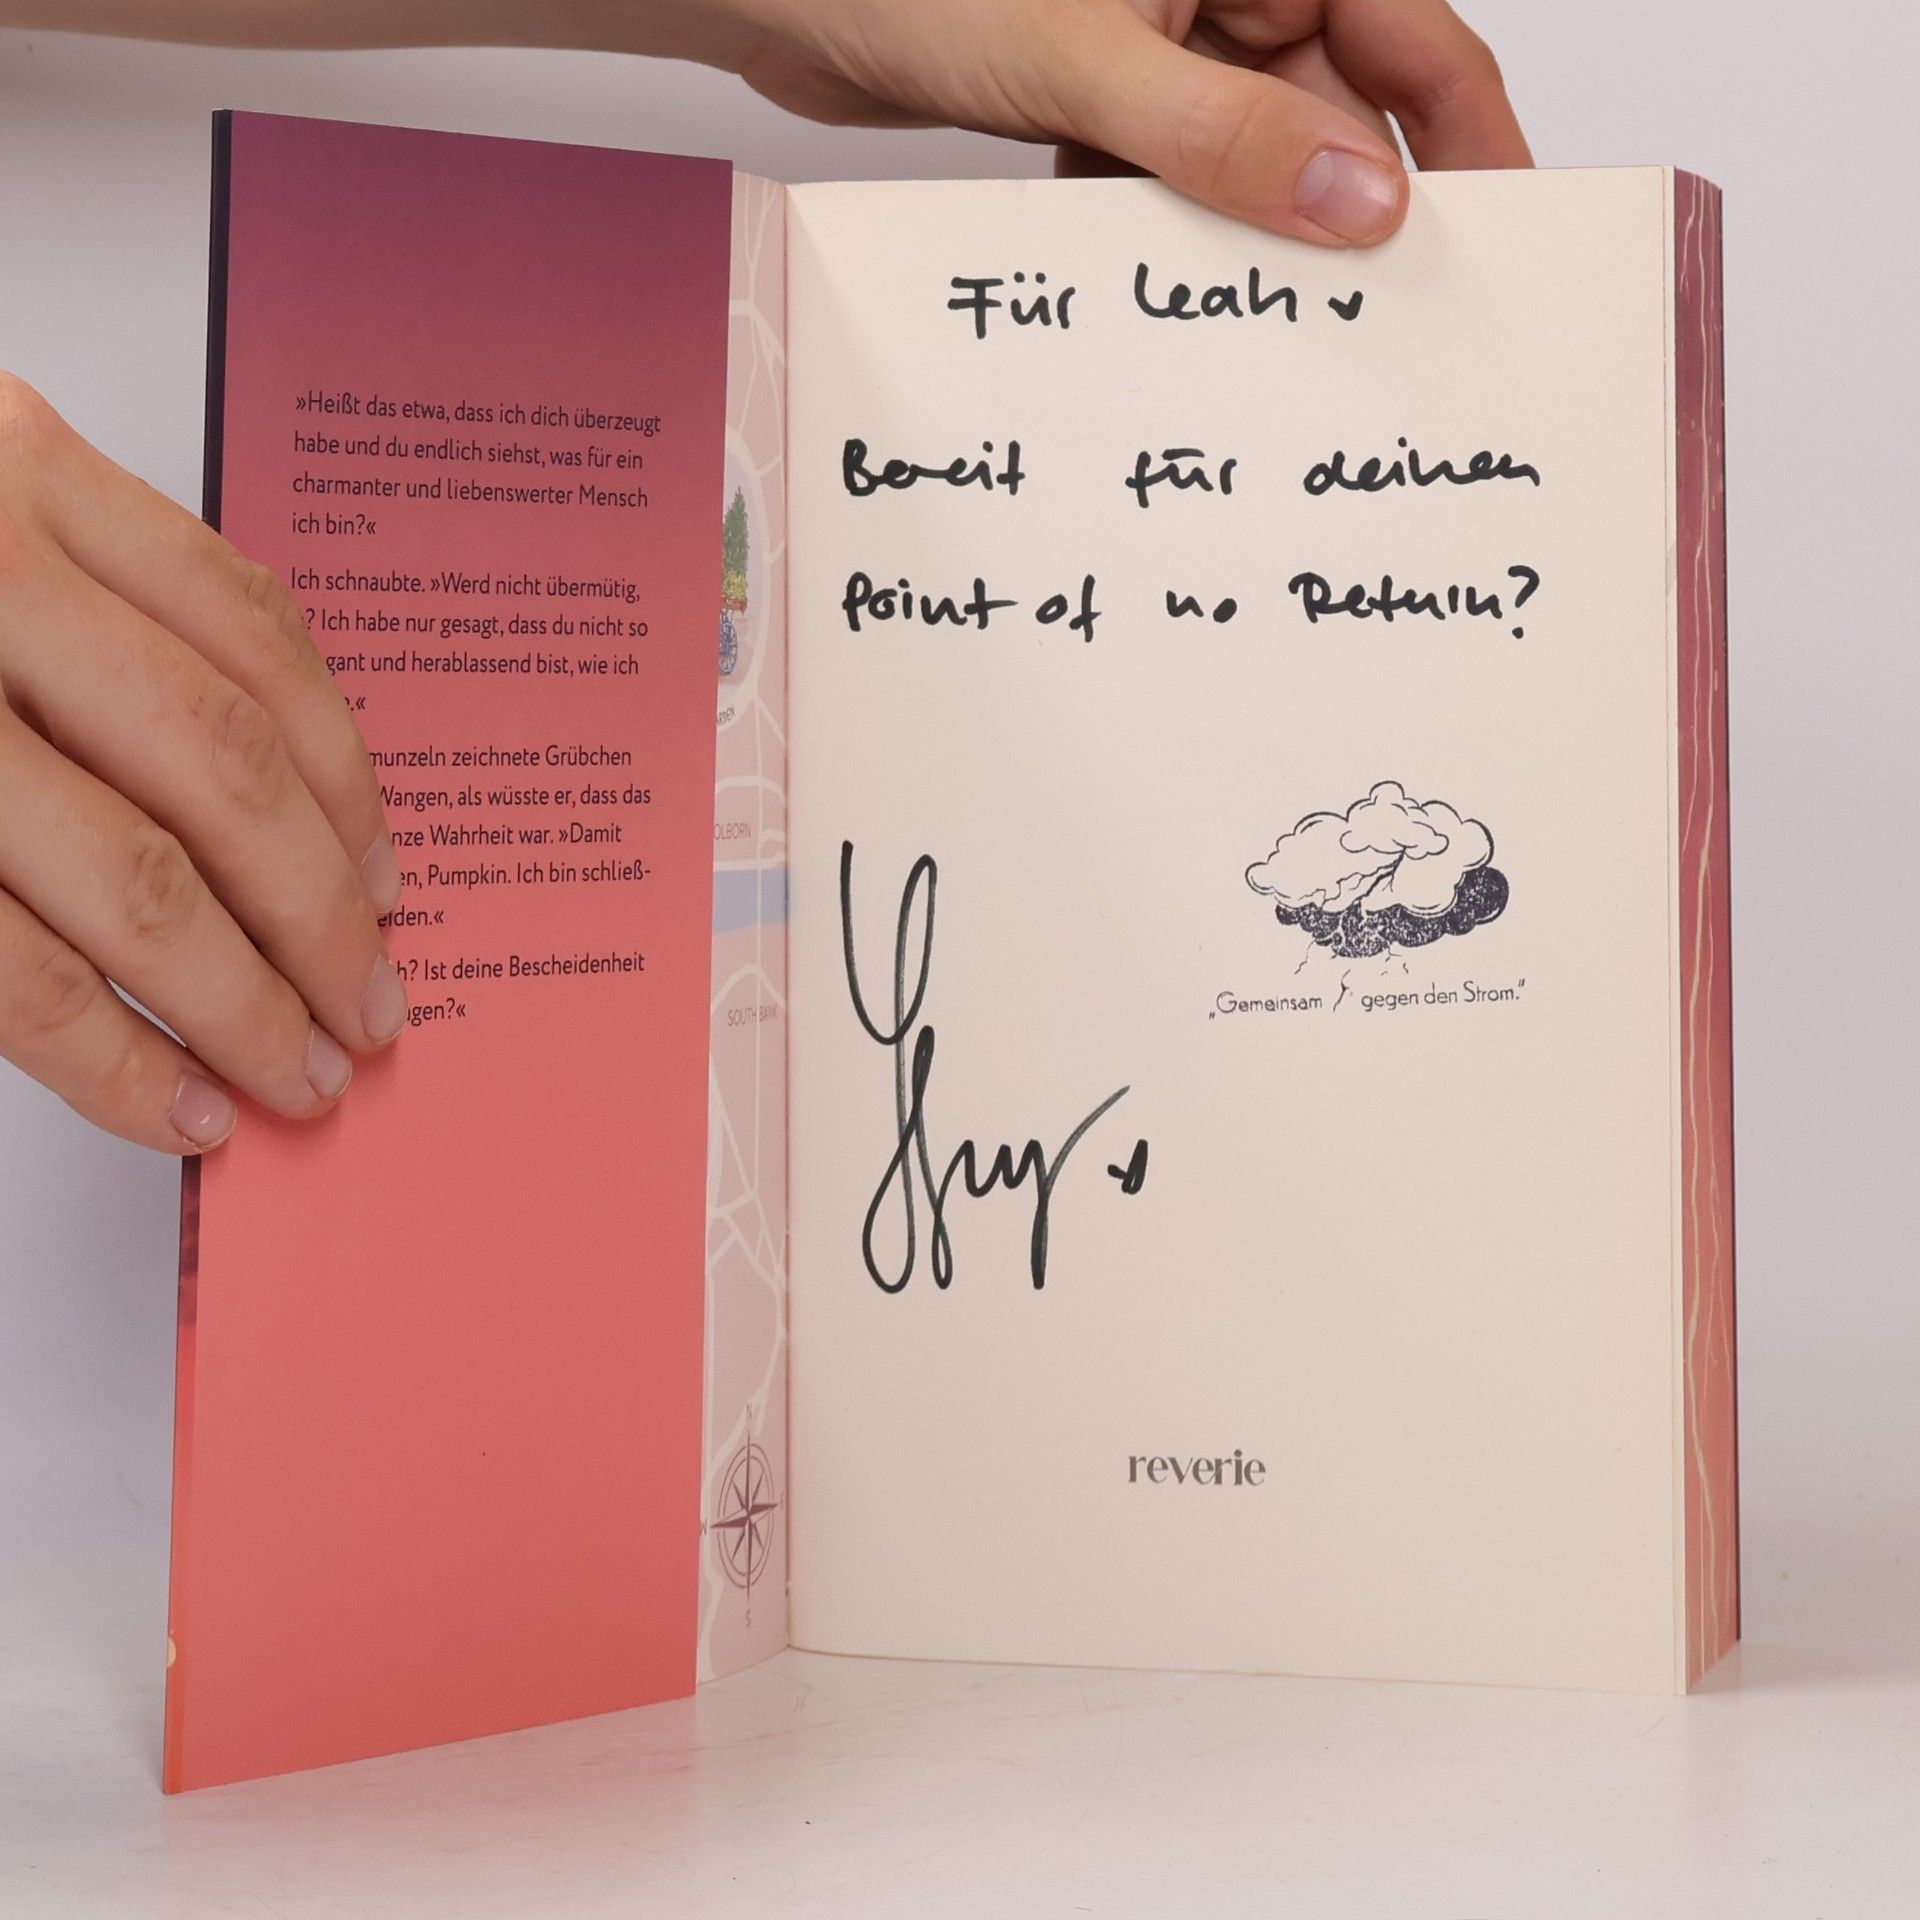 »Heißt das etwa, dass ich dich überzeugt
habe und du endlich siehst, was für ein
charmanter und liebenswerter Mensch
ich bin?«
Ich schnaubte. »Werd nicht übermütig,
? Ich habe nur gesagt, dass du nicht so
gant und herablassend bist, wie ich
.«
munzeln zeichnete Grübchen
Wangen, als wüsste er, dass das
nze Wahrheit war. »Damit
en, Pumpkin. Ich bin schließ-
eiden.«
h? Ist deine Bescheidenheit
ugen?«
ARDEN
OLBORN
SOUTH BANK
N
E
W
S
Für Leah
Bereit für deinen
Point of no Return?
„Gemeinsam gegen den Strom.“
reverie